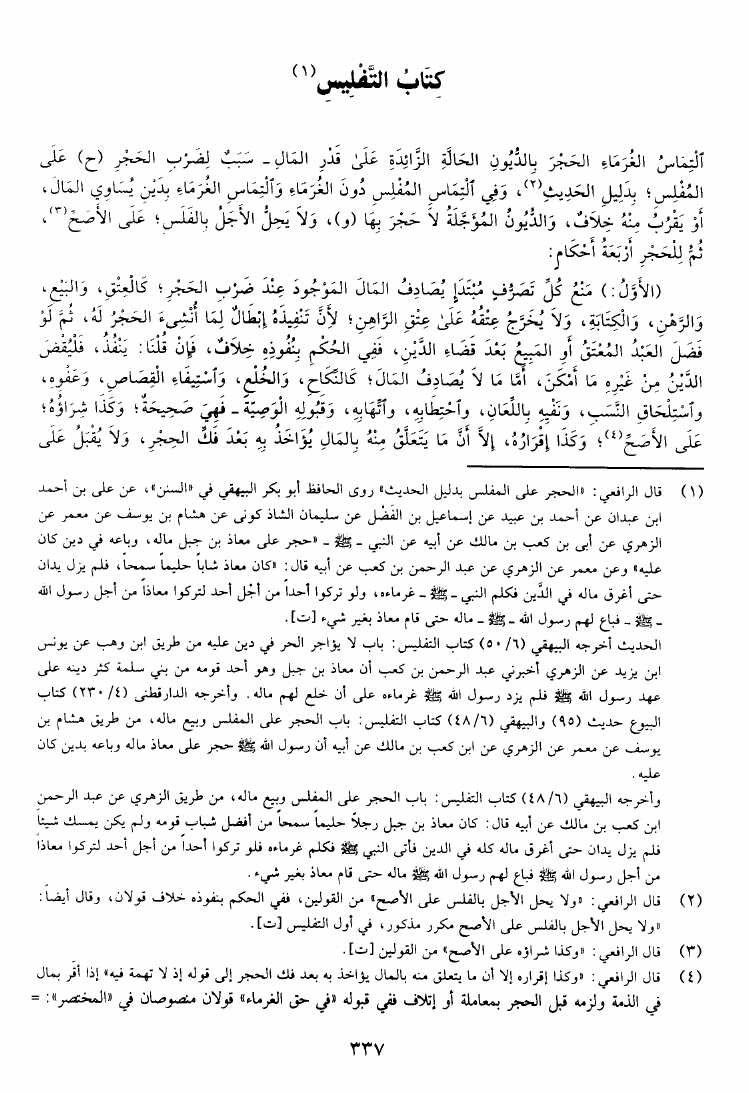 كِتَابُ التَّفْلِيسِ (١)
ٱلْتِمَاسُ الغُرَمَاءِ الحَجْرَ بِالدُّيُونِ الحَالَّةِ الزَّائِدَةِ عَلَىٰ قَدْرِ المَالِ ـ سَبَبٌ لِضَرْبِ الحَجْرِ (ح) عَلَى
المُفْلِسِ؛ بِدَلِيلِ الحَدِيثِ(٢)، وَفِي ٱلْتِمَاسِ المُفْلِسِ دُونَ الغُرَمَاءِ وَٱلْتِمَاسِ الغُرَمَاءِ بِدَيْنٍ يُسَاوِي المَالَ،
أَوْ يَقْرُبُ مِنْهُ خِلَافٌ، وَالدُّيُونُ المُؤَجَّلَةُ لاَ حَجْرَ بِهَا (و)، وَلاَ يَحِلُّ الأَجَلُ بِالفَلَسِ؛ عَلَى الأَصَحِّ(٣)،
ثُمَّ لِلْحَجْرِ أَرْبَعَةُ أَحْكَامٍ:
(الأَوَّلُ:) مَنْعُ كُلِّ تَصَرُّفٍ مُبْتَدَإٍ يُصَادِفُ المَالَ المَوْجُودَ عِنْدَ ضَرْبِ الحَجْرِ؛ كَالعِتْقِ، وَالبَيْعِ،
وَالرَّهْنِ، وَالكِتَابَةِ، وَلاَ يُخَرَّجُ عِتْقُهُ عَلَىٰ عِتْقِ الرَّاهِنِ؛ لأَنَّ تَنْفِيذَهُ إِبْطَالٌ لِمَا أُنْشِىءَ الحَجْرُ لَهُ، ثُمَّ لَوْ
فَضَلَ العَبْدُ المُعْتَقُ أَوِ المَبِيعُ بَعْدَ قَضَاءِ الدَّيْنِ، فَفِي الحُكْمِ بِنُفُوذِهِ خِلَافٌ، فَإِنْ قُلْنَا: يَنْفُذُ، فَلْيُقْضَ
الدَّيْنُ مِنْ غَيْرِهِ مَا أَمْكَنَ، أَمَّا مَا لاَ يُصَادِفُ المَالَ؛ كَالنِّكَاحِ، وَالخُلْعِ، وَٱسْتِيفَاءِ القِصَاصِ، وَعَفْوِهِ،
وٱسْتِلْحَاقِ النَّسَبِ، وَنَفْيِهِ بِاللِّعَانِ، وٱخْتِطَابِهِ، وٱتِّهَابِهِ، وَقَبُولِهِ الوَصِيَّةَ ـ فَهِيَ صَحِيحَةٌ؛ وَكَذَا شِرَاؤُهُ؛
عَلَى الأَصَحِّ(٤)؛ وَكَذَا إِقْرَارُهُ، إِلاَّ أَنَّ مَا يَتَعَلَّقُ مِنْهُ بِالمَالِ يُؤَاخَذُ بِهِ بَعْدَ فَكِّ الحِجْرِ، وَلاَ يُقْبَلُ عَلَى
(١) قال الرافعي: «الحجر على المفلس بدليل الحديث» روى الحافظ أبو بكر البيهقي في «السنن»، عن على بن أحمد
ابن عبدان عن أحمد بن عبيد عن إسماعيل بن الفَضْل عن سليمان الشاذ كونى عن هشام بن يوسف عن معمر عن
الزهري عن أبى بن كعب بن مالك عن أبيه عن النبي ـ ﷺ ـ «حجر على معاذ بن جبل ماله، وباعه في دين كان
عليه» وعن معمر عن الزهري عن عبد الرحمن بن كعب عن أبيه قال: «كان معاذ شاباً حليماً سمحاً، فلم يزل يدان
حتى أغرق ماله في الدَّين فكلم النبي ـ ﷺ ـ غرماءه، ولو تركوا أحداً من أجْل أحد لتركوا معاذاً من أجل رسول الله
ـ ﷺ ـ فباع لهم رسول الله ـ ﷺ ـ ماله حتى قام معاذ بغير شيء [ت].
الحديث أخرجه البيهقي (٥٠/٦) كتاب التفليس: باب لا يؤاجر الحر في دين عليه من طريق ابن وهب عن يونس
ابن يزيد عن الزهري أخبرني عبد الرحمن بن كعب أن معاذ بن جبل وهو أحد قومه من بني سلمة كثر دينه على
عهد رسول الله ﷺ فلم يزد رسول الله ﷺ غرماءه على أن خلع لهم ماله. وأخرجه الدارقطنى (٢٣٠/٤) كتاب
البيوع حديث (٩٥) والبيهقي (٤٨/٦) كتاب التفليس: باب الحجر على المفلس وبيع ماله، من طريق هشام بن
يوسف عن معمر عن الزهري عن ابن كعب بن مالك عن أبيه أن رسول الله ﷺ حجر على معاذ ماله وباعه بدين كان
عليه.
وأخرجه البيهقي (٤٨/٦) كتاب التفليس: باب الحجر على المفلس وبيع ماله، من طريق الزهري عن عبد الرحمن
ابن كعب بن مالك عن أبيه قال: كان معاذ بن جبل رجلاً حليماً سمحاً من أفضل شباب قومه ولم يكن يمسك شيئاً
فلم يزل يدان حتى أغرق ماله كله في الدين فأتى النبي ﷺ فكلم غرماءه فلو تركوا أحداً من أجل أحد لتركوا معاذاً
من أجل رسول الله ﷺ فباع لهم رسول الله ﷺ ماله حتى قام معاذ بغير شيء.
(٢) قال الرافعي: «ولا يحل الأجل بالفلس على الأصح» من القولين، ففي الحكم بنفوذه خلاف قولان، وقال أيضاً:
«ولا يحل الأجل بالفلس على الأصح مكرر مذكور، في أول التفليس [ت].
(٣) قال الرافعي: «وكذا شراؤه على الأصح» من القولين [ت].
(٤) قال الرافعي: «وكذا إقراره إلا أن ما يتعلق منه بالمال يؤاخذ به بعد فك الحجر إلى قوله إذ لا تهمة فيه» إذا أقر بمال
في الذمة ولزمه قبل الحجر بمعاملة أو إتلاف ففي قبوله «في حق الغرماء» قولان منصوصان في «المختصر»: =
٣٣٧